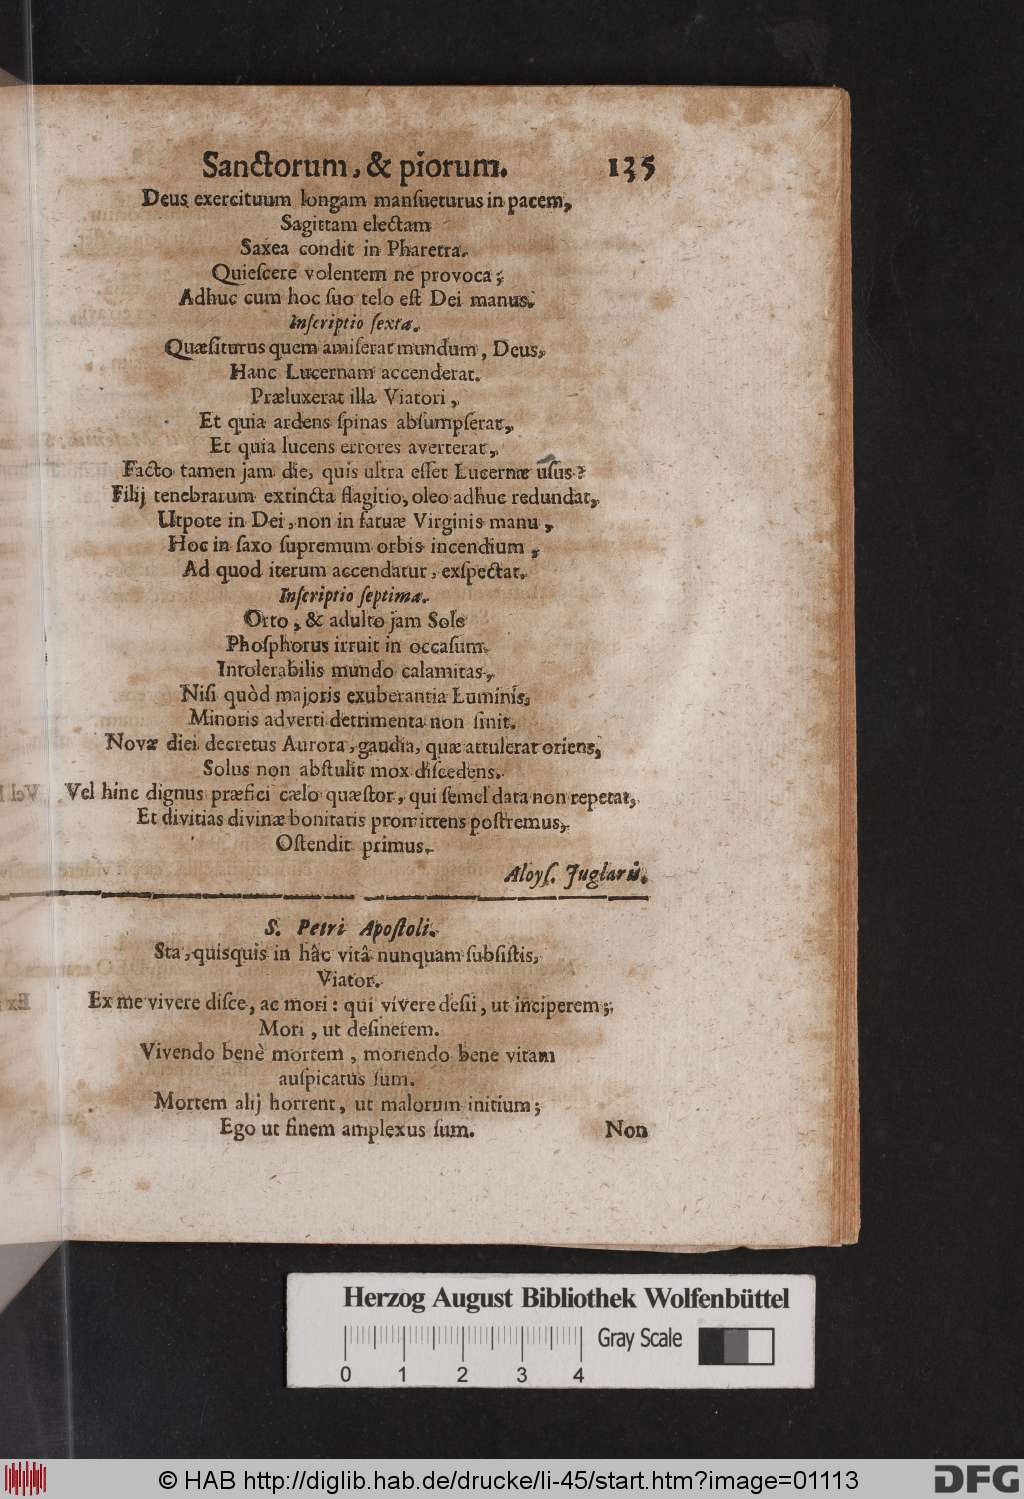 Sanctorum, & piorum. 135
Deus exercituum longam mansueturus in pacem,
Sagittam electam
Saxea condit in Pharetra.
Quiescere volentem ne provoca;
Adhuc cum hoc suo telo est Dei manus.
Inscriptio sexta.
Quæsiturus quem amiserat mundum, Deus,
Hanc Lucernam accenderat.
Præluxerat illa Viatori,
Et quia ardens spinas absumpserat,
Et quia lucens errores averterat,
Facto tamen jam die, quis ultra esset Lucernæ usus?
Filij tenebrarum extincta flagitio, oleo adhuc redundat,
Utpote in Dei, non in fatuæ Virginis manu,
Hoc in saxo supremum orbis incendium,
Ad quod iterum accendatur, exspectat.
Inscriptio septima.
Orto, & adulto jam Sole
Phosphorus irruit in occasum.
Intolerabilis mundo calamitas,
Nisi quòd majoris exuberantia Luminis,
Minoris adverti detrimenta non sinit.
Novæ diei decretus Aurora, gaudia, quæ attulerat oriens,
Solus non abstulit mox discedens.
Vel hinc dignus præfici cælo quæstor, qui semel data non repetat,
Et divitias divinæ bonitatis promittens postremus,
Ostendit primus.
Aloys. Juglaris.
S. Petri Apostoli.
Sta, quisquis in hâc vitâ nunquam subsistis,
Viator.
Ex me vivere disce, ac mori: qui vivere desii, ut inciperem;
Mori, ut desinerem.
Vivendo benè mortem, moriendo bene vitam
auspicatus sum.
Mortem alij horrent, ut malorum initium;
Ego ut finem amplexus sum. Non
Herzog August Bibliothek Wolfenbüttel
0 1 2 3 4 Gray Scale
© HAB http://diglib.hab.de/drucke/li-45/start.htm?image=01113 DFG